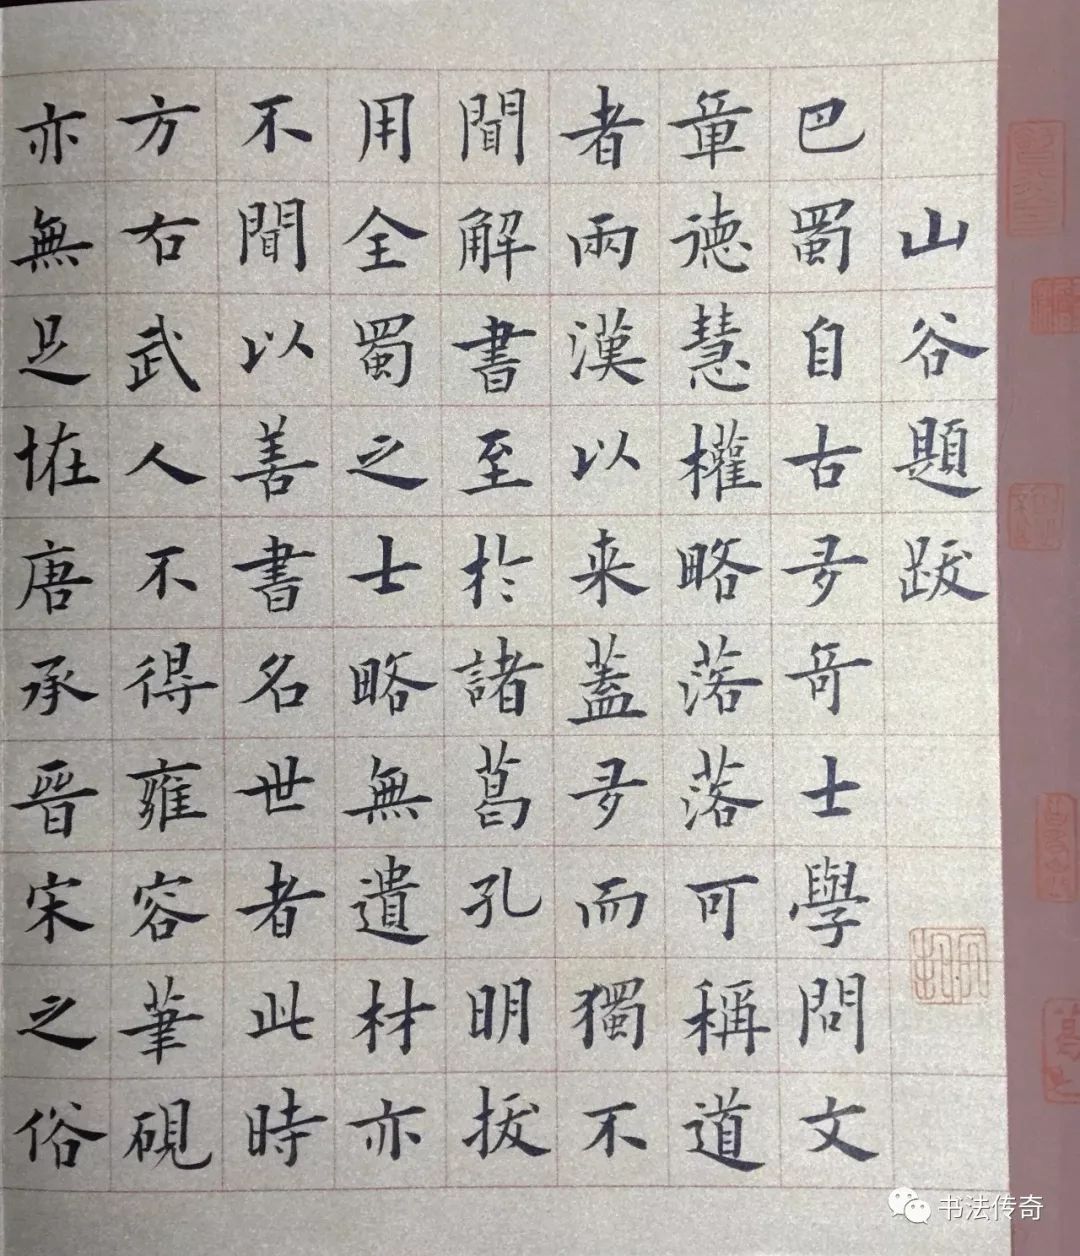 山谷題跋
巴蜀自古多奇士學問文
章德慧權略落落可稱道
者兩漢以来蓋多而獨不
聞解書至於諸葛孔明拔
用全蜀之士略無遺材亦
不聞以善書名世者此時
方右武人不得雍容筆硯
亦無足恠唐承晉宋之俗
书法传奇